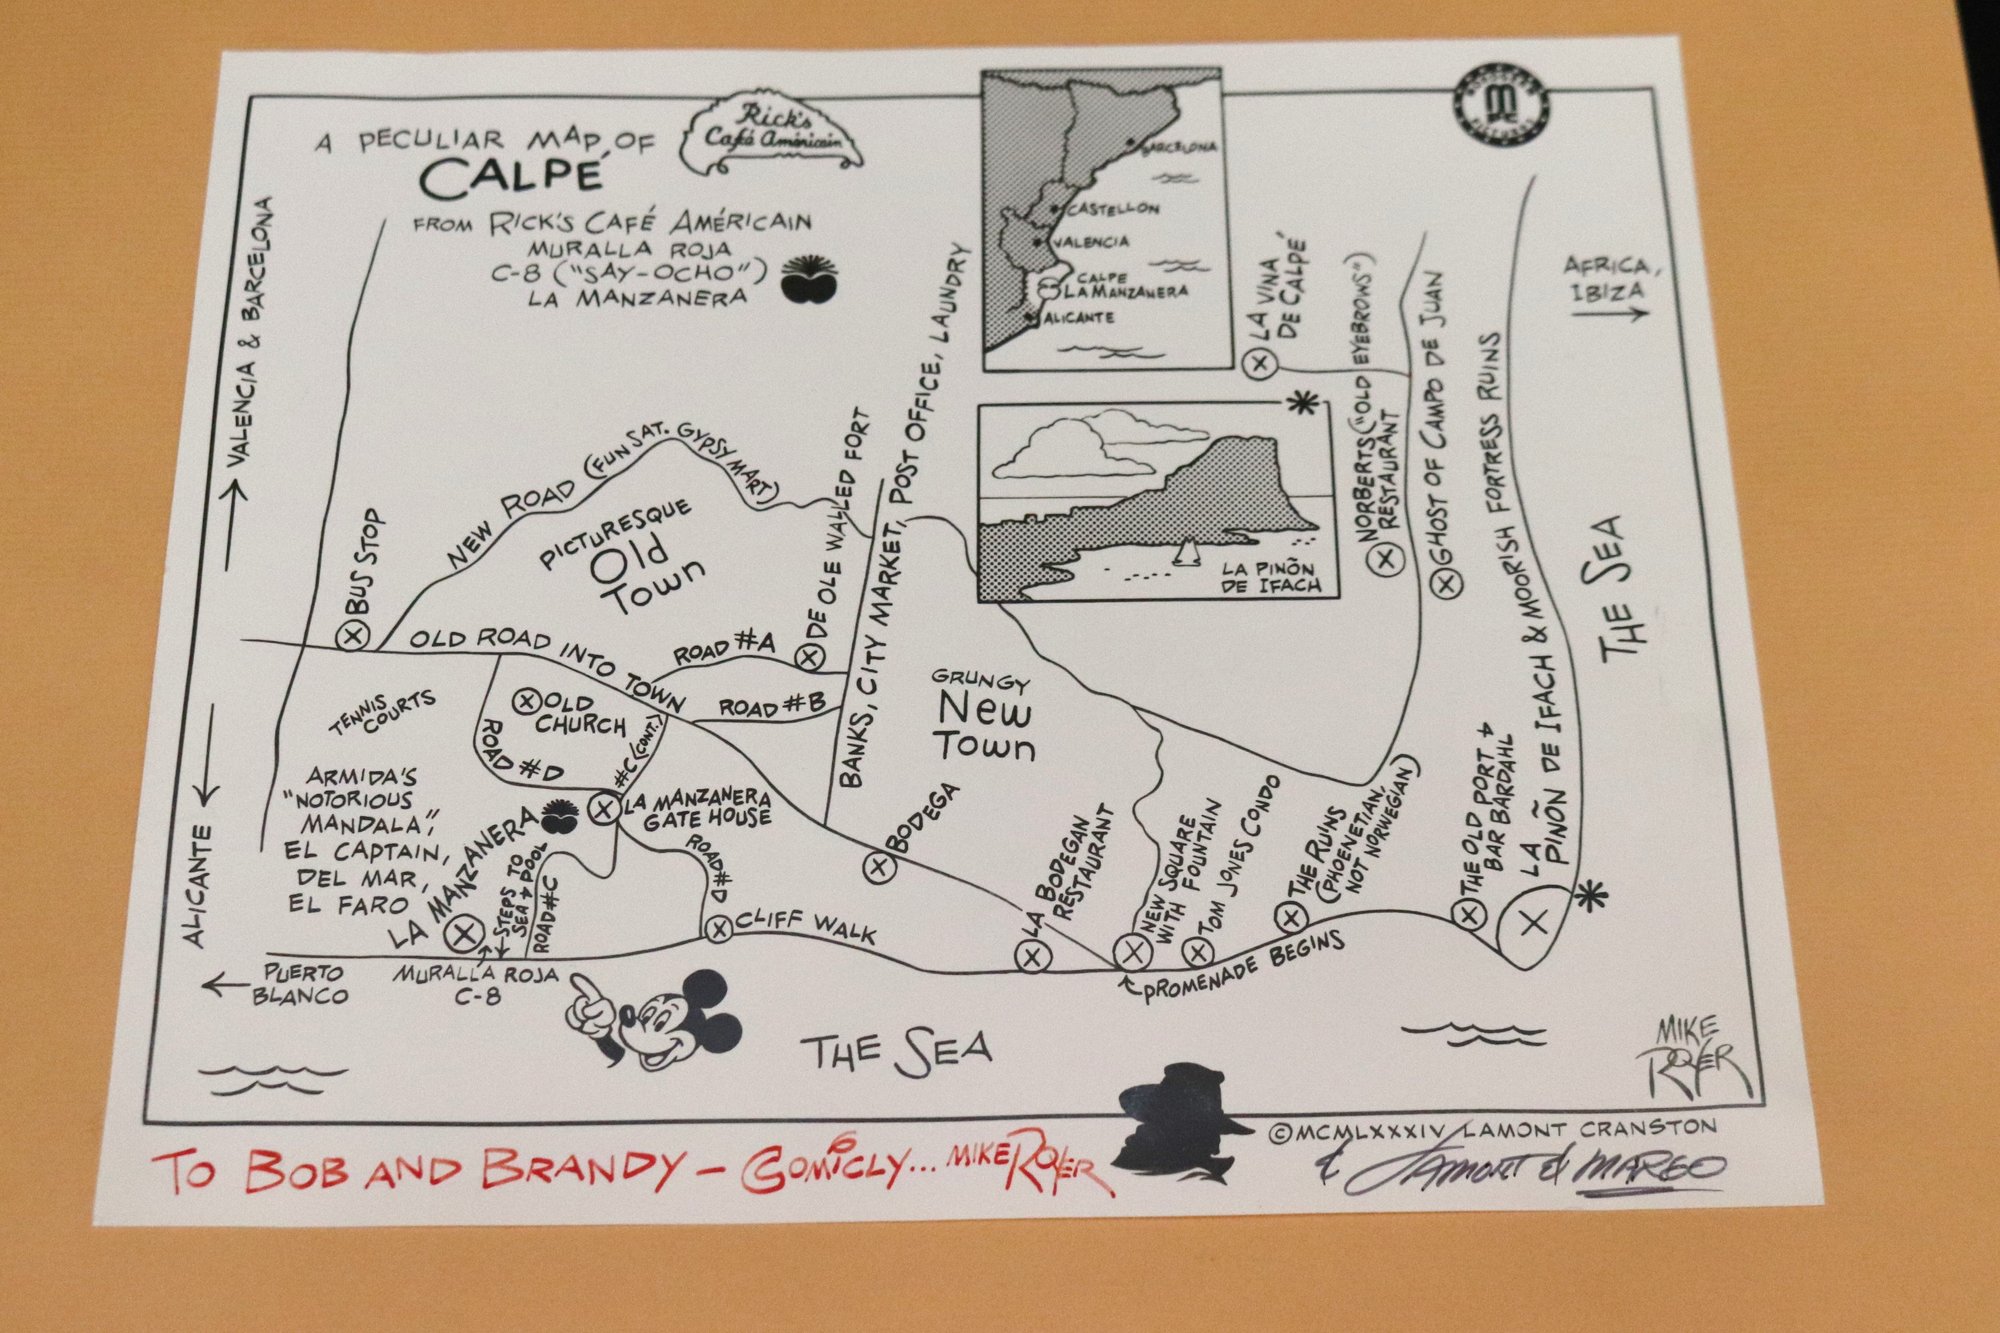 A PECULIAR MAP OF
CALPÉ
Rick's
Café Américain
FROM RICK'S CAFÉ AMÉRICAIN
MURALLA ROJA
C-8 ("SAY-OCHO")
LA MANZANERA
BARCELONA
CASTELLON
VALENCIA
CALPE
LA MANZANERA
ALICANTE
PICTURES
AFRICA,
IBIZA
VALENCIA & BARCELONA
ALICANTE
BUS STOP
NEW ROAD (FUN SAT. GYPSY MART)
PICTURESQUE
Old
Town
OLD ROAD INTO TOWN
ROAD #A
ROAD #B
DE OLE WALLED FORT
BANKS, CITY MARKET, POST OFFICE, LAUNDRY
LA PIÑON
DE IFACH
LA VINA
DE CALPÉ
NORBERTS ("OLD EYEBROWS")
RESTAURANT
GHOST OF CAMPO DE JUAN
LA
PIÑON DE IFACH & MOORISH FORTRESS RUINS
THE SEA
GRUNGY
New
Town
TENNIS
COURTS
OLD
CHURCH
ROAD #D
#C (CONT.)
ARMIDA'S
"NOTORIOUS
MANDALA",
EL CAPTAIN,
DEL MAR,
EL FARO
LA MANZANERA
LA MANZANERA
GATE HOUSE
STEPS TO
SEA & POOL
ROAD #C
ROAD #D
CLIFF WALK
BODEGA
LA BODEGAN
RESTAURANT
NEW SQUARE
WITH FOUNTAIN
TOM JONES CONDO
THE RUINS
(PHOENETIAN,
NOT NORWEGIAN)
THE OLD PORT &
BAR BARDAHL
PROMENADE BEGINS
PUERTO
BLANCO
MURALLA ROJA
C-8
THE SEA
MIKE
ROYER
©MCMLXXXIV LAMONT CRANSTON
& LAMONT & MARGO
TO BOB AND BRANDY – COMICLY... MIKE ROYER